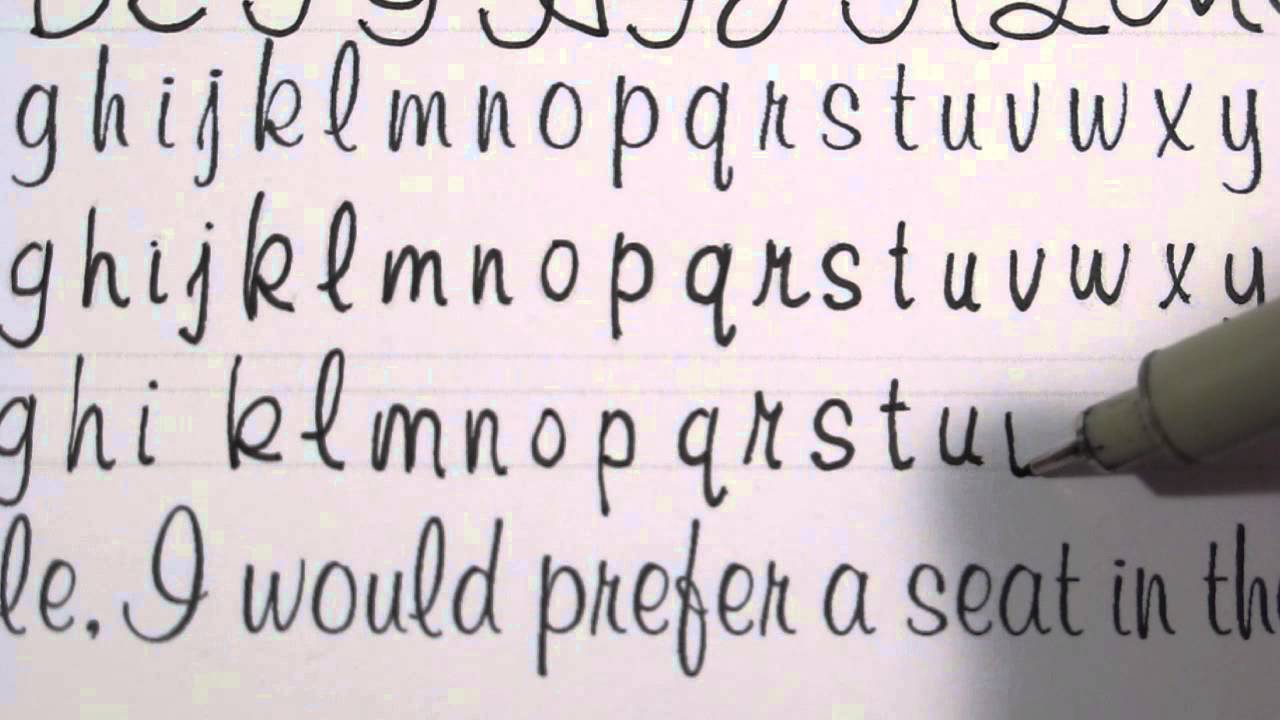 g h i j k l m n o p q r s t u v w x y
g h i j k l m n o p q r s t u v w x y
g h i k l m n o p q r s t u
le. I would prefer a seat in th